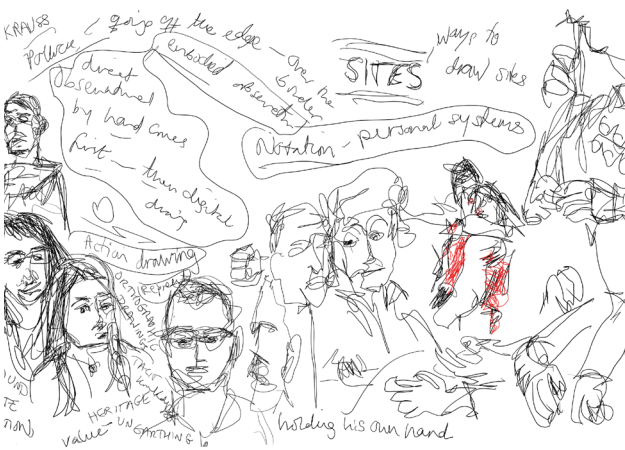 KRAUSS
going off the edge — over the border
embodied observation
SITES
ways to
draw sites
direct
observational
by hand comes
first — then digital
Notation - personal systems
Action drawing
ORTHOGRAPHIC
DRAWINGS
HERITAGE
value - UN
EARTHING
holding his own hand